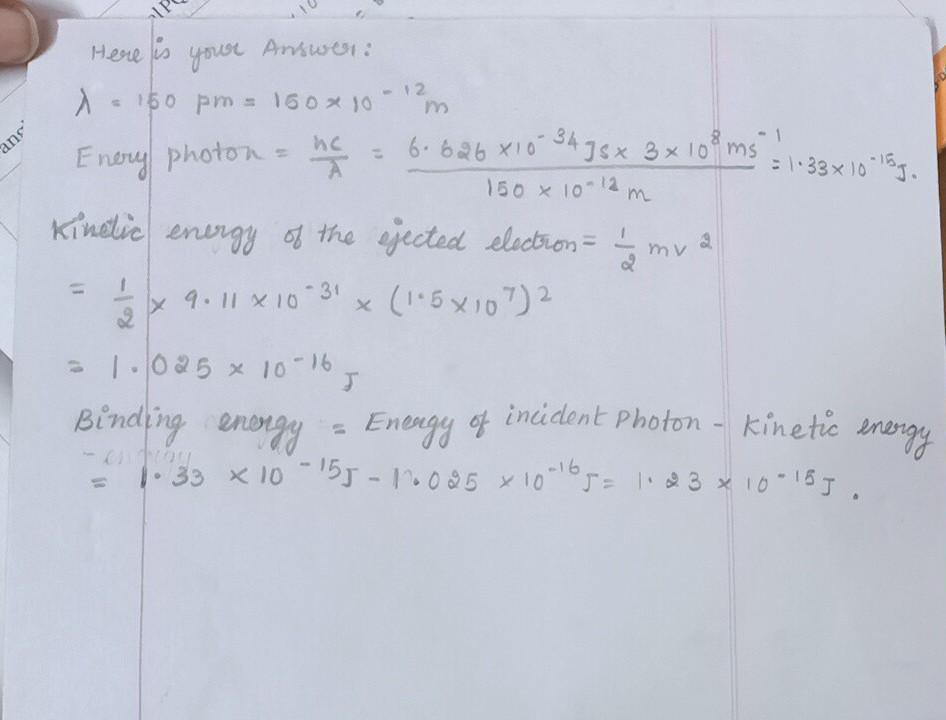 Here is your Answer:
λ = 150 pm = 150 × 10⁻¹² m
Enery photon = hc/λ = 6.626 × 10⁻³⁴ Js × 3 × 10⁸ ms⁻¹ / 150 × 10⁻¹² m = 1.33 × 10⁻¹⁵ J.
Kinetic energy of the ejected electron = 1/2 mv²
= 1/2 × 9.11 × 10⁻³¹ × (1.5 × 10⁷)²
= 1.025 × 10⁻¹⁶ J
Binding energy = Energy of incident Photon - Kinetic energy
= 1.33 × 10⁻¹⁵ J - 1.025 × 10⁻¹⁶ J = 1.23 × 10⁻¹⁵ J.